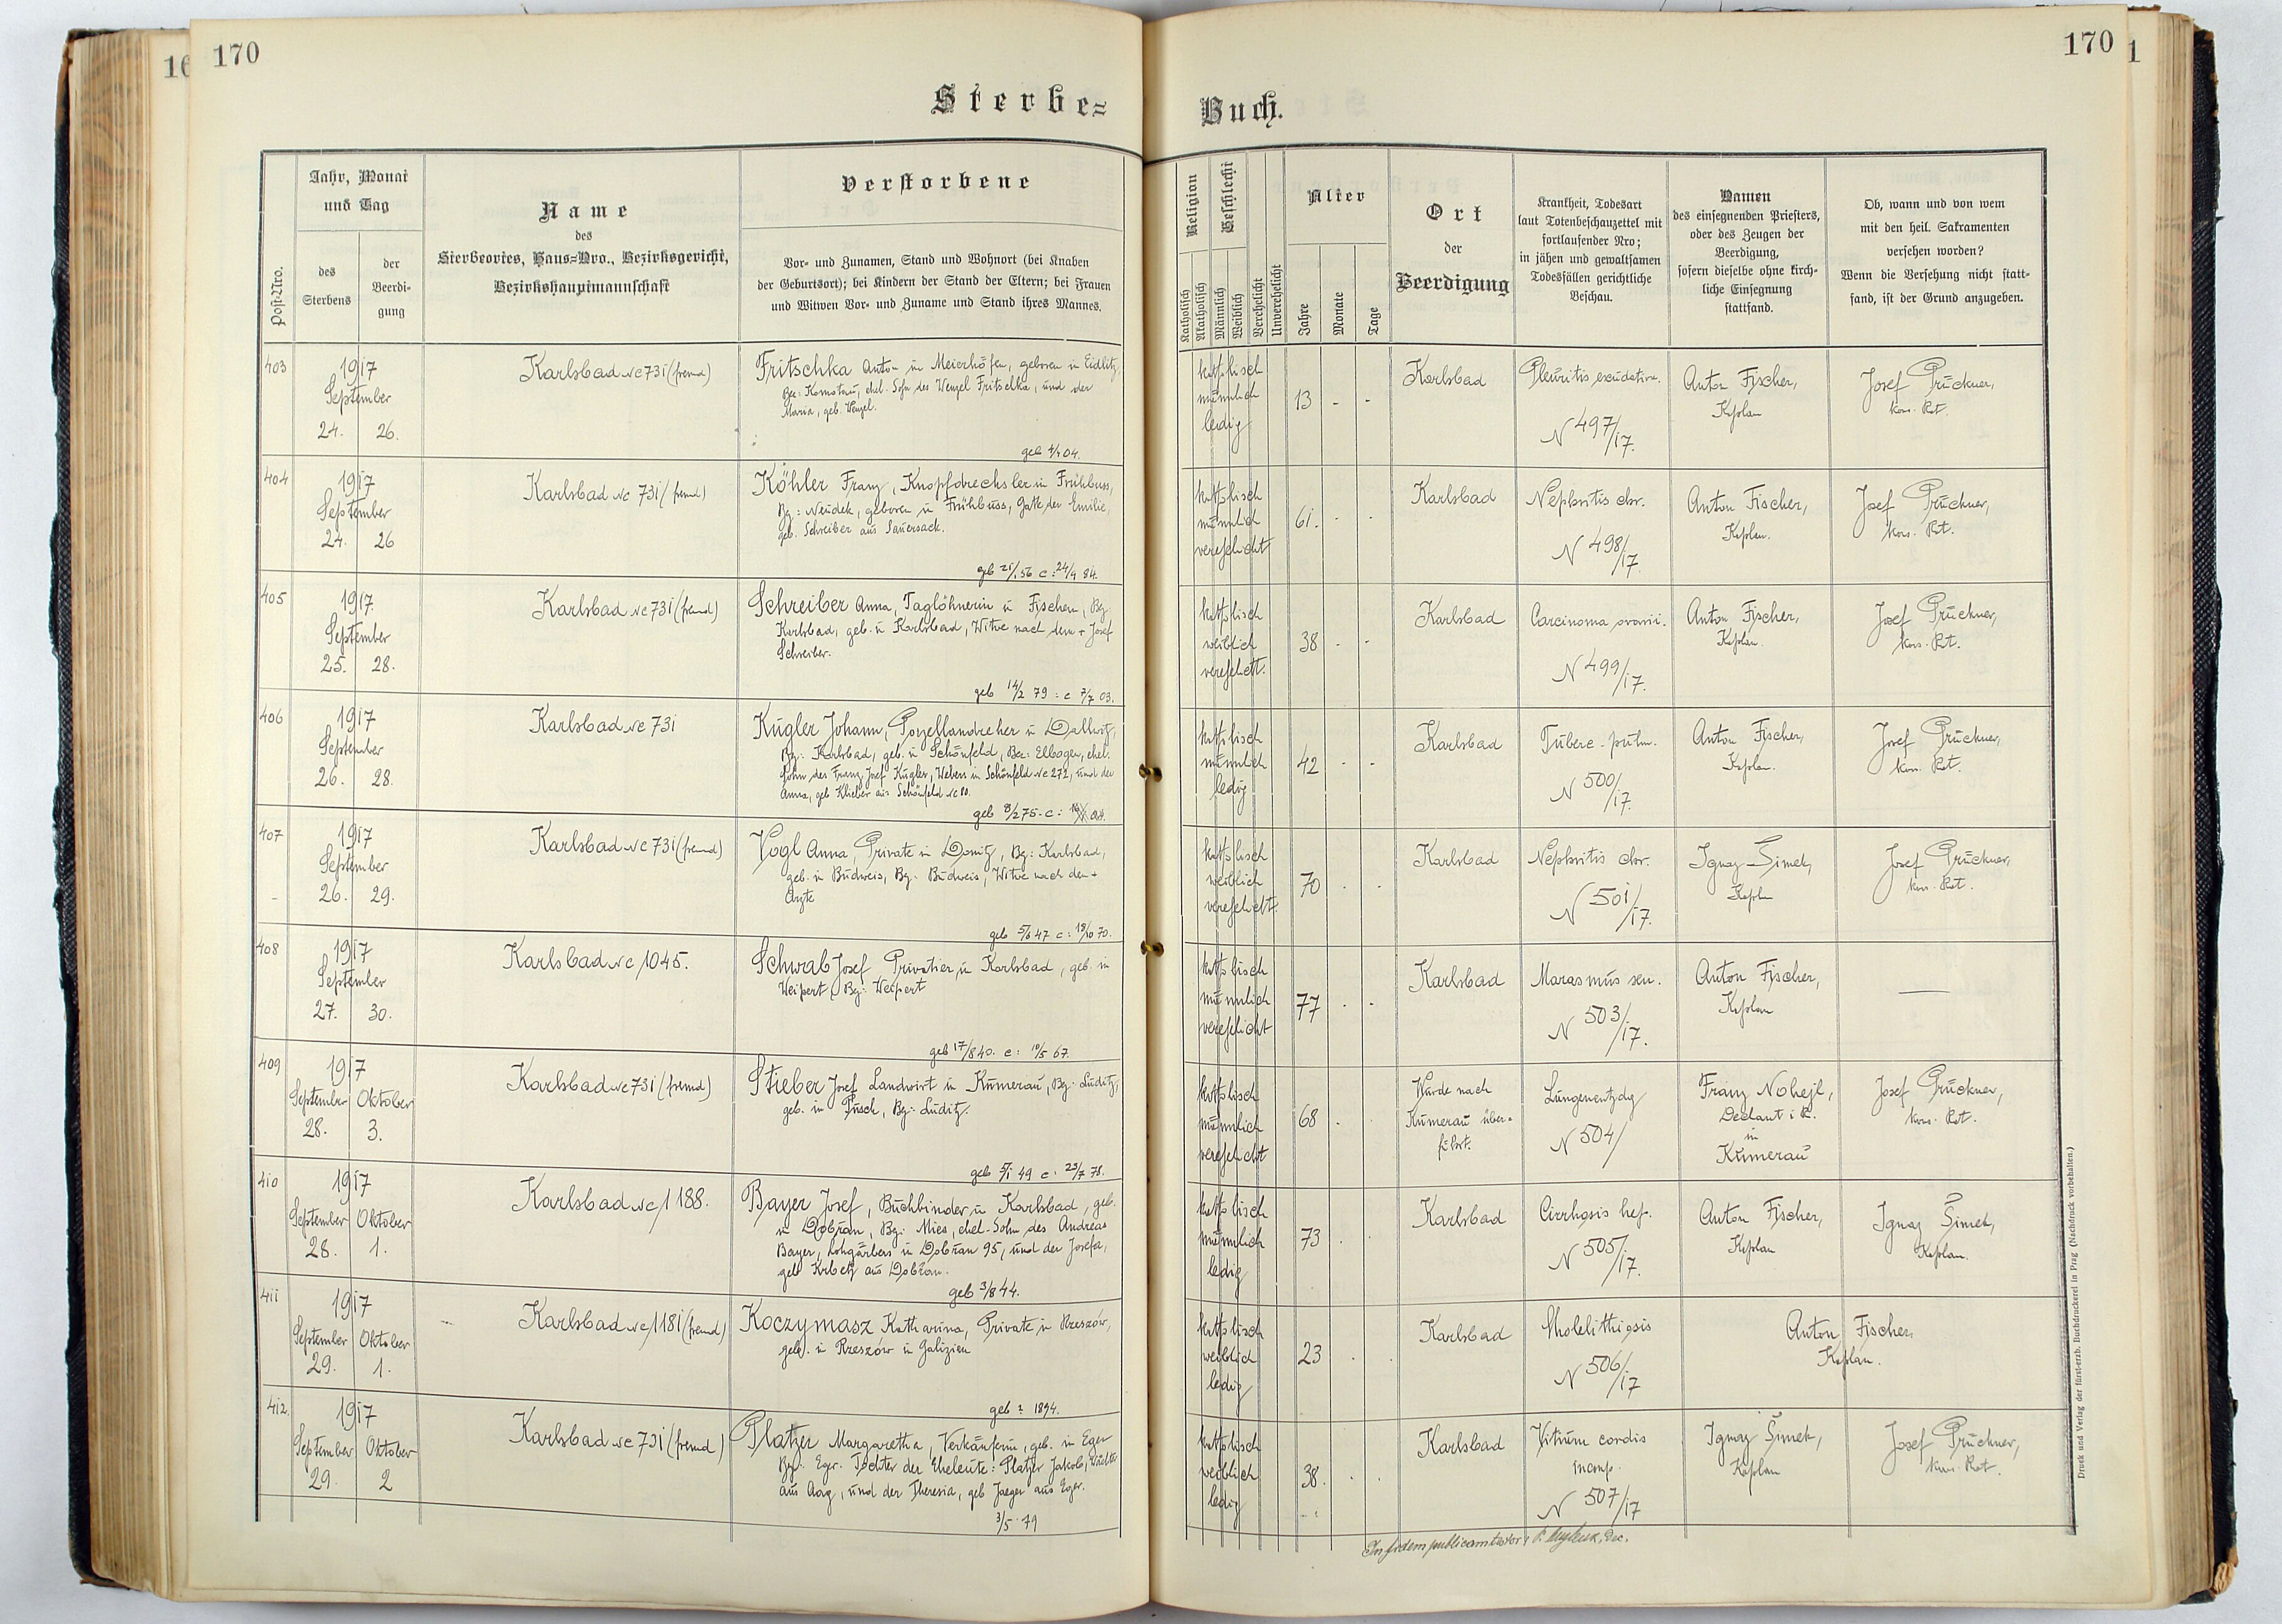 16
170
170
1
Sterbe=
Buch.
Post-Nro.
Jahr, Monat
und Tag
des
Sterbens
der
Beerdi-
gung
Name
des
Sterbeortes, Haus=Nro., Bezirksgericht,
Bezirkshauptmannschaft
Verstorbene
Vor- und Zunamen, Stand und Wohnort (bei Knaben
der Geburtsort); bei Kindern der Stand der Eltern; bei Frauen
und Witwen Vor- und Zuname und Stand ihres Mannes.
Religion
Katholisch
Akatholisch
Geschlecht
Männlich
Weiblich
Verehelicht
Unverehelicht
Alter
Jahre
Monate
Tage
Ort
der
Beerdigung
Krankheit, Todesart
laut Totenbeschauzettel mit
fortlaufender Nro;
in jähen und gewaltsamen
Todesfällen gerichtliche
Beschau.
Namen
des einsegnenden Priesters,
oder des Zeugen der
Beerdigung,
sofern dieselbe ohne kirch-
liche Einsegnung
stattfand.
Ob, wann und von wem
mit den heil. Sakramenten
versehen worden?
Wenn die Versehung nicht statt-
fand, ist der Grund anzugeben.
403
1917
September
24. 26.
Karlsbad Nc 731 (fremd)
Fritschka Anton in Meierhöfen, geboren in Eidlitz,
Bez: Komotau, ehel. Sohn des Wenzel Fritschka, und der
Maria, geb. Wenzel.
geb 4/4 04.
katholisch
männlich
ledig
13 - -
Karlsbad
Pleuritis exudativa.
N 497/17.
Anton Fischer,
Kaplan
Josef Prückner,
Kons. Rat.
404
1917
September
24. 26
Karlsbad Nc 731 (fremd)
Köhler Franz, Knopfdrechsler in Frühbuss,
Bg: Neudek, geboren in Frühbuss, Gatte der Emilie,
geb. Schreiber aus Sauersack.
geb 21/1 56 c: 24/4 84.
katholisch
männlich
verehelicht
61. - -
Karlsbad
Nephritis chr.
N 498/17.
Anton Fischer,
Kaplan.
Josef Prückner,
Kons. Rat.
405
1917.
September
25. 28.
Karlsbad Nc 731 (fremd)
Schreiber Anna, Taglöhnerin in Fischern, Bg:
Karlsbad, geb. in Karlsbad, Witwe nach dem + Josef
Schreiber.
geb 14/2 79 : c 7/7 03.
katholisch
weiblich
verehelicht.
38 - -
Karlsbad
Carcinoma ovarii.
N 499/17.
Anton Fischer,
Kaplan.
Josef Prückner,
Kons. Rat.
406
1917
September
26. 28.
Karlsbad Nc 731
Kugler Johann, Porzellandreher in Dallwitz,
Bg: Karlsbad, geb. in Schönfeld, Bez: Elbogen, ehel.
Sohn des Franz Josef Kugler, Webers in Schönfeld Nc 272, und der
Anna, geb Klieber aus Schönfeld Nc 80.
geb 8/2 75 - c:
katholisch
männlich
ledig
42 - -
Karlsbad
Tuberc. pulm.
N 500/17.
Anton Fischer,
Kaplan.
Josef Prückner,
Kons. Rat.
407
1917
September
26. 29.
Karlsbad Nc 731 (fremd)
Vogl Anna, Private in Donitz, Bg: Karlsbad,
geb. in Budweis, Bg. Budweis, Witwe nach dem +
Arzte
geb 5/6 47 c: 18/10 70.
katholisch
weiblich
verehelicht.
70 - -
Karlsbad
Nephritis chr.
N 501/17.
Ignaz Šimek,
Kaplan
Josef Prückner,
Kons. Rat.
408
1917
September
27. 30.
Karlsbad Nc 1045.
Schwab Josef, Privatier in Karlsbad, geb. in
Weipert, Bg: Weipert
geb 17/8 40. c: 10/5 67.
katholisch
männlich
verehelicht
77 - -
Karlsbad
Marasmus sen.
N 503/17.
Anton Fischer,
Kaplan
—
409
1917
September Oktober
28. 3.
Karlsbad Nc 731 (fremd)
Stieber Josef Landwirt in Kumerau, Bg: Luditz,
geb. in Pusch, Bg: Luditz.
geb 5/1 49 c: 23/7 78.
katholisch
männlich
verehelicht
68 -
Wurde nach
Kumerau über-
führt.
Lungenentzdg
N 504/
Franz Nohejl,
Dechant i. R.
in
Kumerau
Josef Prückner,
Kons. Rat.
410
1917
September Oktober
28. 1.
Karlsbad Nc 1188.
Bayer Josef, Buchbinder in Karlsbad, geb.
in Dobřan, Bg: Mies, ehel. Sohn des Andreas
Bayer, Lohgärbers in Dobřan 95, und der Josefa,
geb Krbetz aus Dobřan.
geb 3/8 44.
katholisch
männlich
ledig
73 - -
Karlsbad
Cirrhosis hep.
N 505/17.
Anton Fischer,
Kaplan
Ignaz Šimek,
Kaplan.
411
1917
September Oktober
29. 1.
Karlsbad Nc 1181 (fremd)
Koczymasz Katharina, Private in Rzeszów,
geb. in Rzeszów in Galizien
geb ? 1894.
katholisch
weiblich
ledig
23 . .
Karlsbad
Cholelithiosis
N 506/17
Anton Fischer,
Kaplan.
412.
1917
September Oktober
29. 2
Karlsbad Nc 731 (fremd)
Platzer Margaretha, Verkäuferin, geb. in Eger
Bg: Eger. Tochter der Eheleute: Platzer Jakob, Wächter
aus Aag, und der Theresia, geb Jaeger aus Eger.
3/5 79
katholisch
weiblich
ledig
38. . .
Karlsbad
Vitium cordis
incomp.
N 507/17
Ignaz Šimek,
Kaplan
Josef Prückner,
Kons. Rat.
In fidem publicam testor:
Dec.
Druck und Verlag der fürst-erzb. Buchdruckerei in Prag (Nachdruck vorbehalten.)